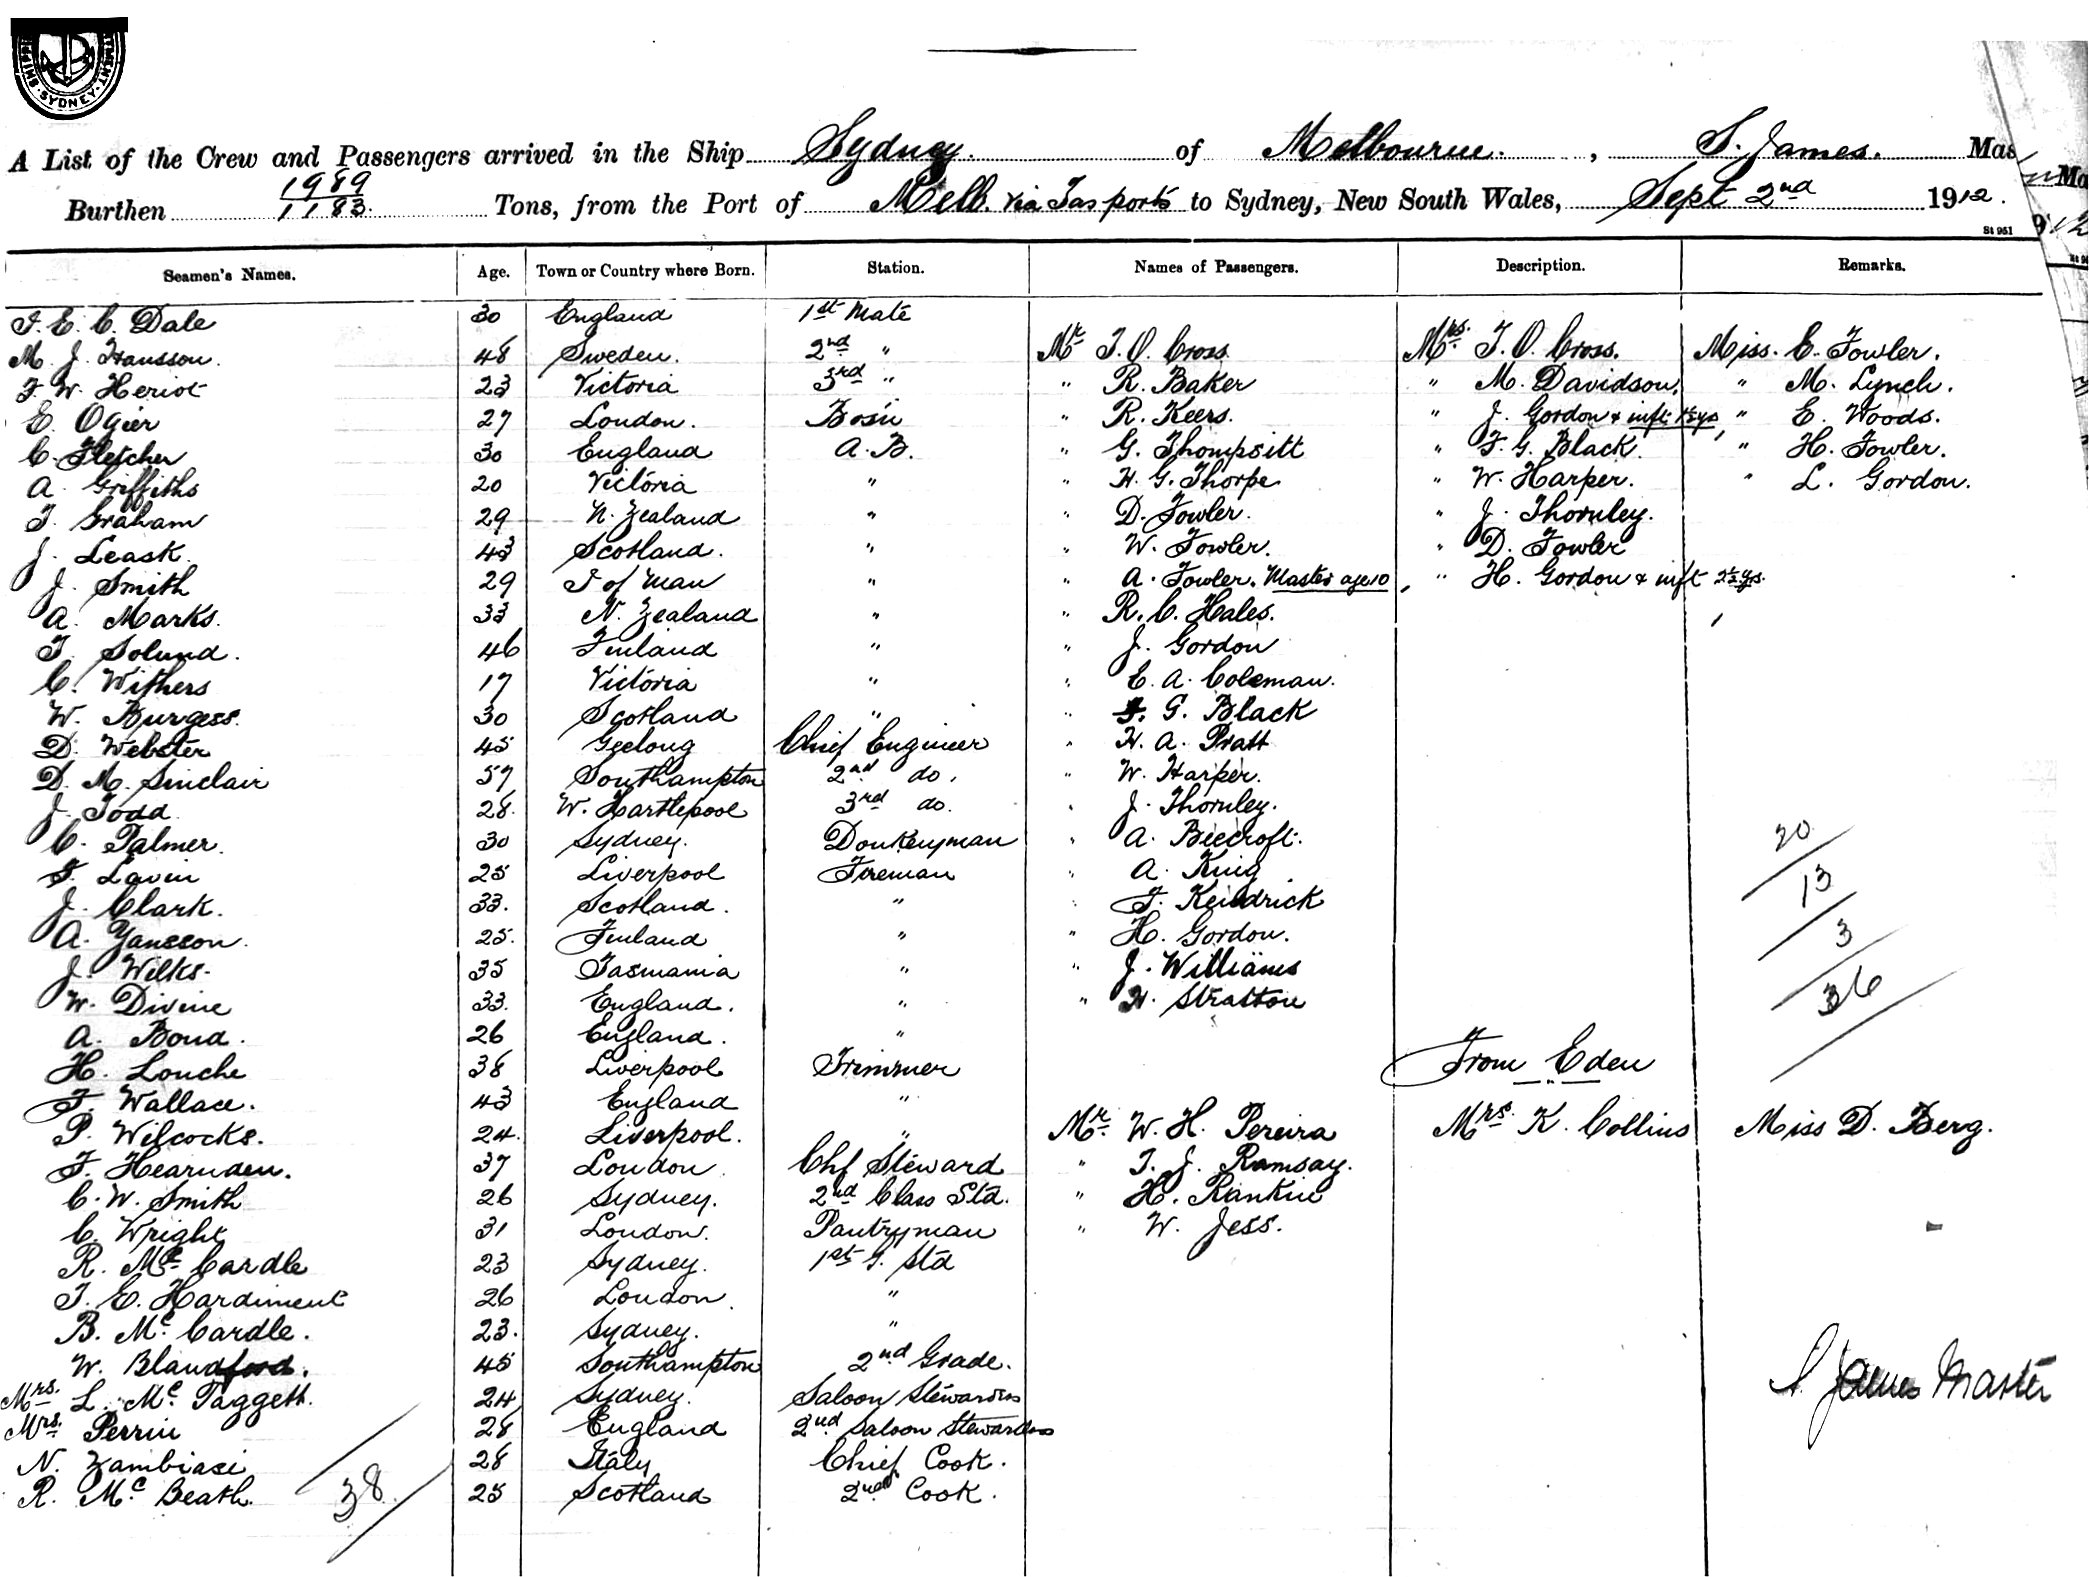 SYDNEY
A List of the Crew and Passengers arrived in the Ship Sydney. of Melbourne. , S. James. Mas
Burthen 1989 / 1183. Tons, from the Port of Melb. via Tas ports to Sydney, New South Wales, Sept 2nd 1912.
St 951
Seamen's Names. Age. Town or Country where Born. Station. Names of Passengers. Description. Remarks.
F. E. C. Dale 30 England 1st Mate
M. J. Hansson. 48 Sweden. 2nd " Mr T. O. Cross Mrs. T. O. Cross. Miss. E. Fowler.
F. W. Heriot 23 Victoria 3rd " " R. Baker " M. Davidson, " M. Lynch.
E. Ogier 27 London. Bos'n " R. Keers. " J. Gordon & inft. " E. Woods.
C. Fletcher 30 England A.B. " G. Thompsitt " F. G. Black. " H. Fowler.
A. Griffiths 20 Victoria " " H. G. Thorpe " W. Harper. " L. Gordon.
T. Graham 29 N. Zealand " " D. Fowler. " J. Thornley.
J. Leask. 43 Scotland. " " W. Fowler. " D. Fowler
J. Smith 29 I of Man " " A. Fowler. Master age 10 , " H. Gordon & inft 2½ yrs.
A. Marks. 33 N. Zealand " " R. C. Hales.
T. Solund. 46 Finland " " J. Gordon
C. Withers 17 Victoria " " E. A. Coleman.
W. Burgess. 30 Scotland " " F. G. Black
D. Webster 45 Geelong Chief Engineer " H. A. Pratt
D. M. Sinclair 57 Southampton 2nd do. " W. Harper.
J. Todd 28. W. Hartlepool 3rd do. " J. Thornley.
C. Palmer. 30 Sydney. Donkeyman " A. Beecroft. 20
F. Lavin 25 Liverpool Fireman " A. King 13
J. Clark. 33. Scotland. " " F. Kendrick
A. Yansson. 25. Finland " " H. Gordon. 3
J. Wilks. 35 Tasmania " " J. Williams 36
W. Divine 33. England. " " H. Stratton
A. Bond. 26 England. "
H. Louche 38 Liverpool Trimmer From Eden
F. Wallace. 43 England "
P. Wilcocks. 24. Liverpool. " Mr. W. H. Pereira Mrs. K. Collins Miss D. Berg.
F. Hearnden. 37 London Chf Steward " T. J. Ramsay.
C. W. Smith 26 Sydney. 2nd Class Std. " H. Rankin
C. Wright 31 London. Pantryman " W. Jess.
R. Mc Cardle 23 Sydney. 1st G. Std
T. E. Hardiment 26 London. "
B. Mc Cardle. 23. Sydney. "
W. Blandford. 45 Southampton 2nd Grade.
Mrs. L. Mc Taggett. 24 Sydney. Saloon Stewardess S. James Master
Mrs. Perrin 28 England 2nd Saloon Stewardess
N. Zambiasi 28 Italy Chief Cook.
R. Mc Beath. 38 25 Scotland 2nd Cook.